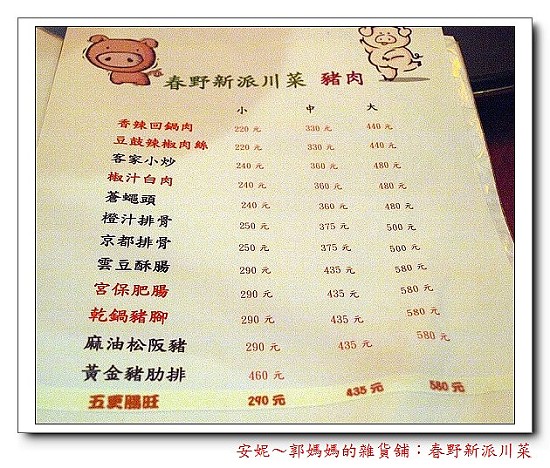 春野新派川菜 豬肉
小 中 大
香辣回鍋肉 220 元 330 元 440 元
豆鼓辣椒肉絲 220 元 330 元 440 元
客家小炒 240 元 360 元 480 元
椒汁白肉 240 元 360 元 480 元
蒼蠅頭 240 元 360 元 480 元
橙汁排骨 250 元 375 元 500 元
京都排骨 250 元 375 元 500 元
雲豆酥腸 290 元 435 元 580 元
宮保肥腸 290 元 435 元 580 元
乾鍋豬腳 290 元 435 元 580 元
麻油松阪豬 290 元 435 元 580 元
黃金豬肋排 460 元
五更腸旺 290 元 435 元 580 元
安妮～郭媽媽的雜貨舖：春野新派川菜